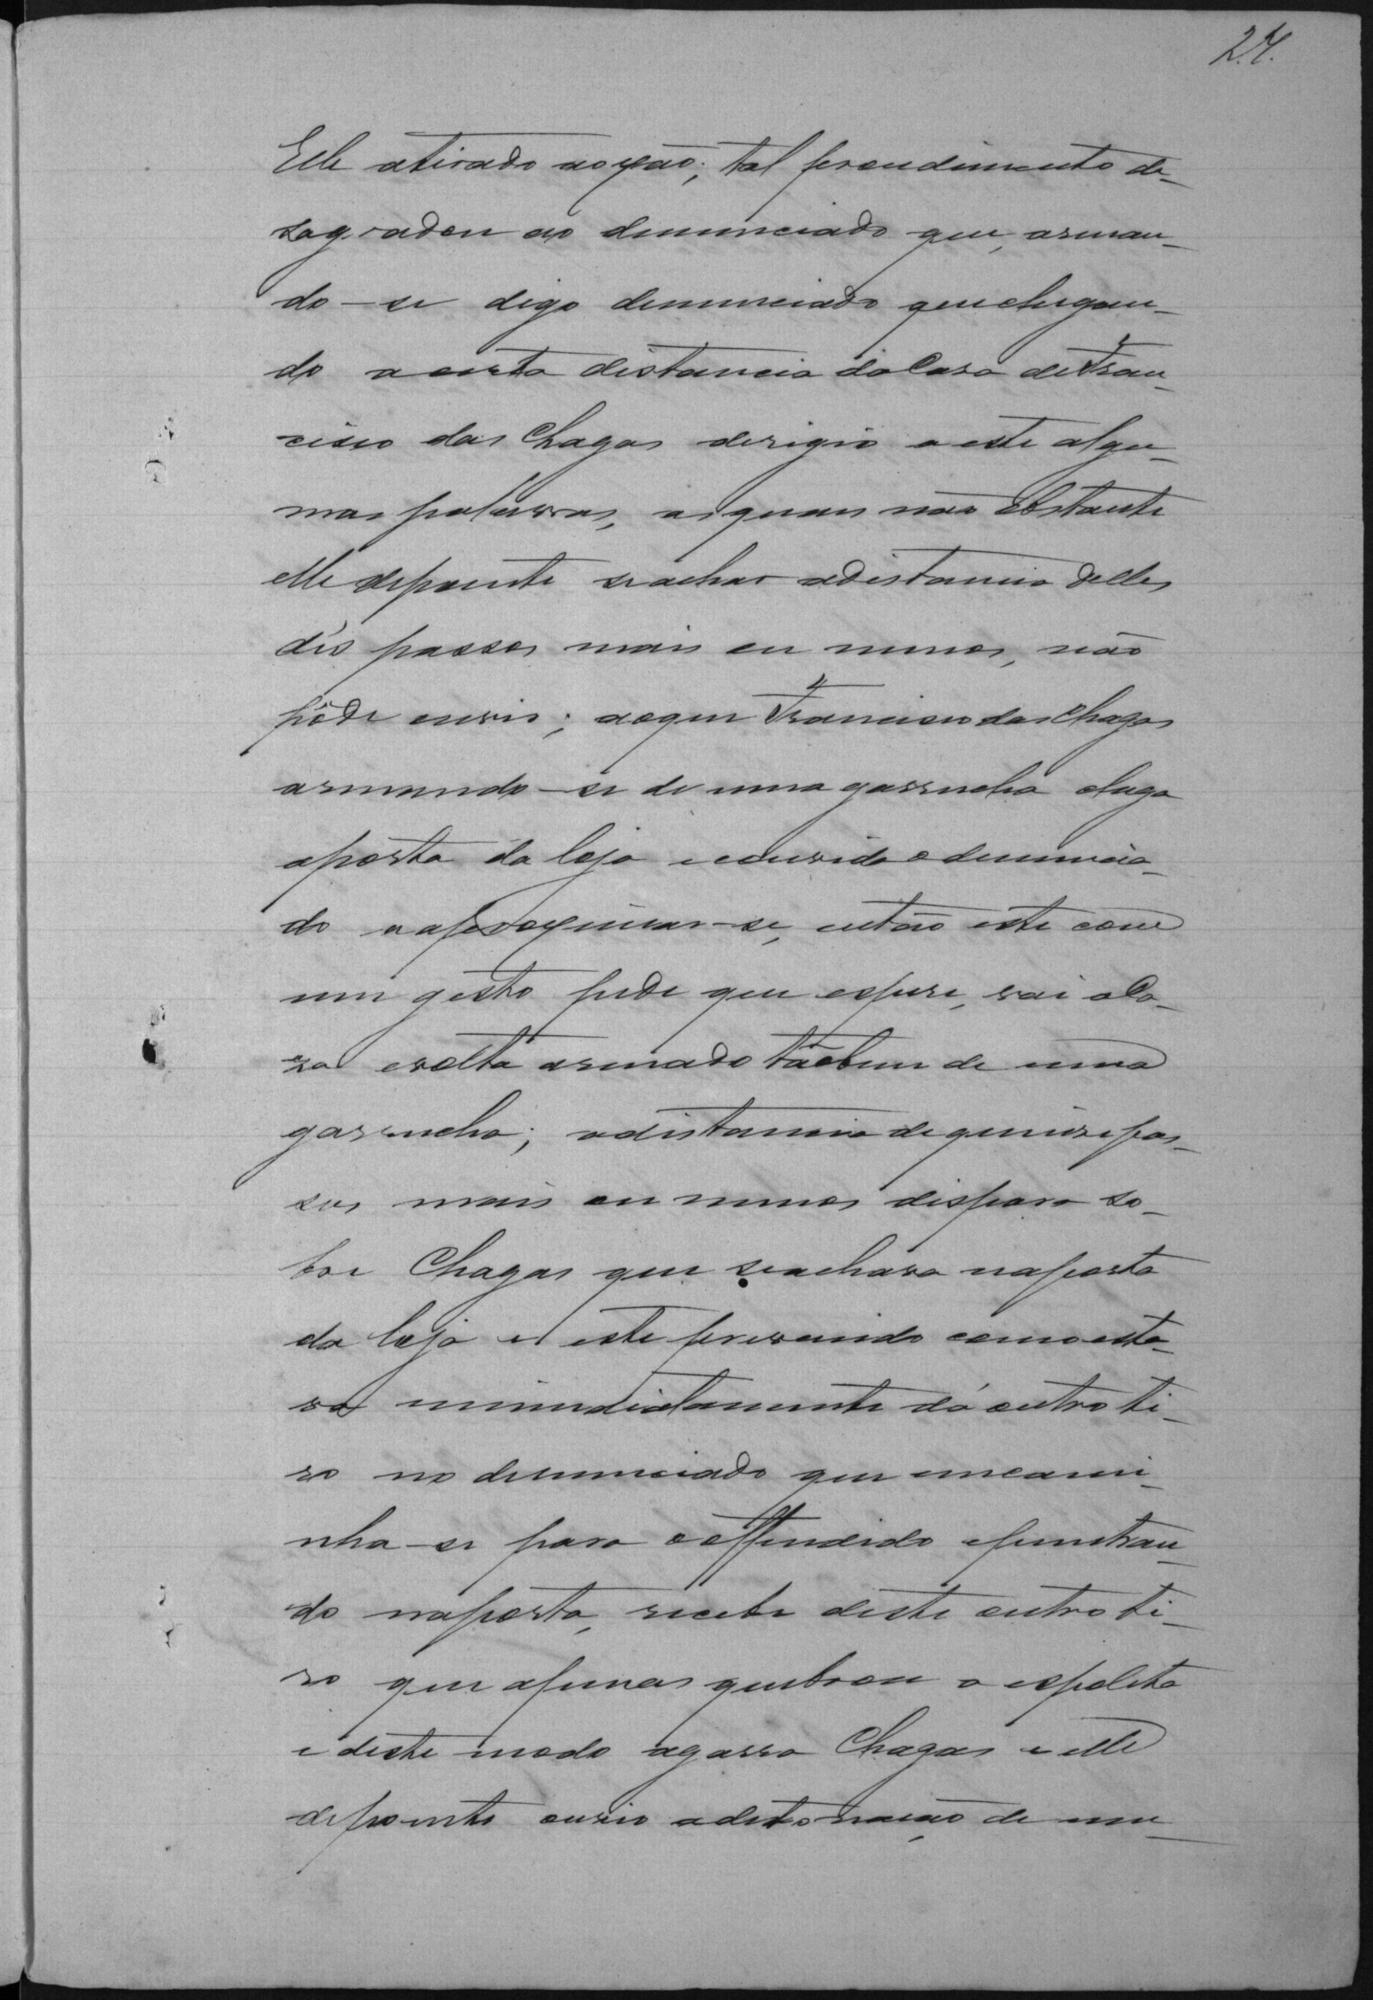 27.
Elle atirado ao xão; tal procedimento de-
sagradou ao denunciado que, arman-
do-se digo denunciado que chegan-
do a certa distancia da Casa de Fran-
cisco das Chagas derigio a este algu-
mas palavras, as quaes não obstante
elle depoente se achar a distancia delles
dés passos mais ou menos, não
pôde ouvir; ao que Francisco das Chagas
armando-se de uma garrucha chega
a porta da loja e convida o denuncia-
do a aproximar-se, então este com
um gesto pede que espere, vai a Ca-
sa e volta armado tãobem de uma
garrucha; a distancia de quinse pas-
sos mais ou menos dispara so-
bre Chagas que se achava na porta
da loja e este prevenido como esta-
va immediatamente dá outro ti-
ro no denunciado que encami-
nha-se para o offendido e penetran-
do na porta, recebe deste outro ti-
ro que apenas quebrou a espoleta
e deste modo agarra Chagas e elle
depoente ouvio a detonação de um